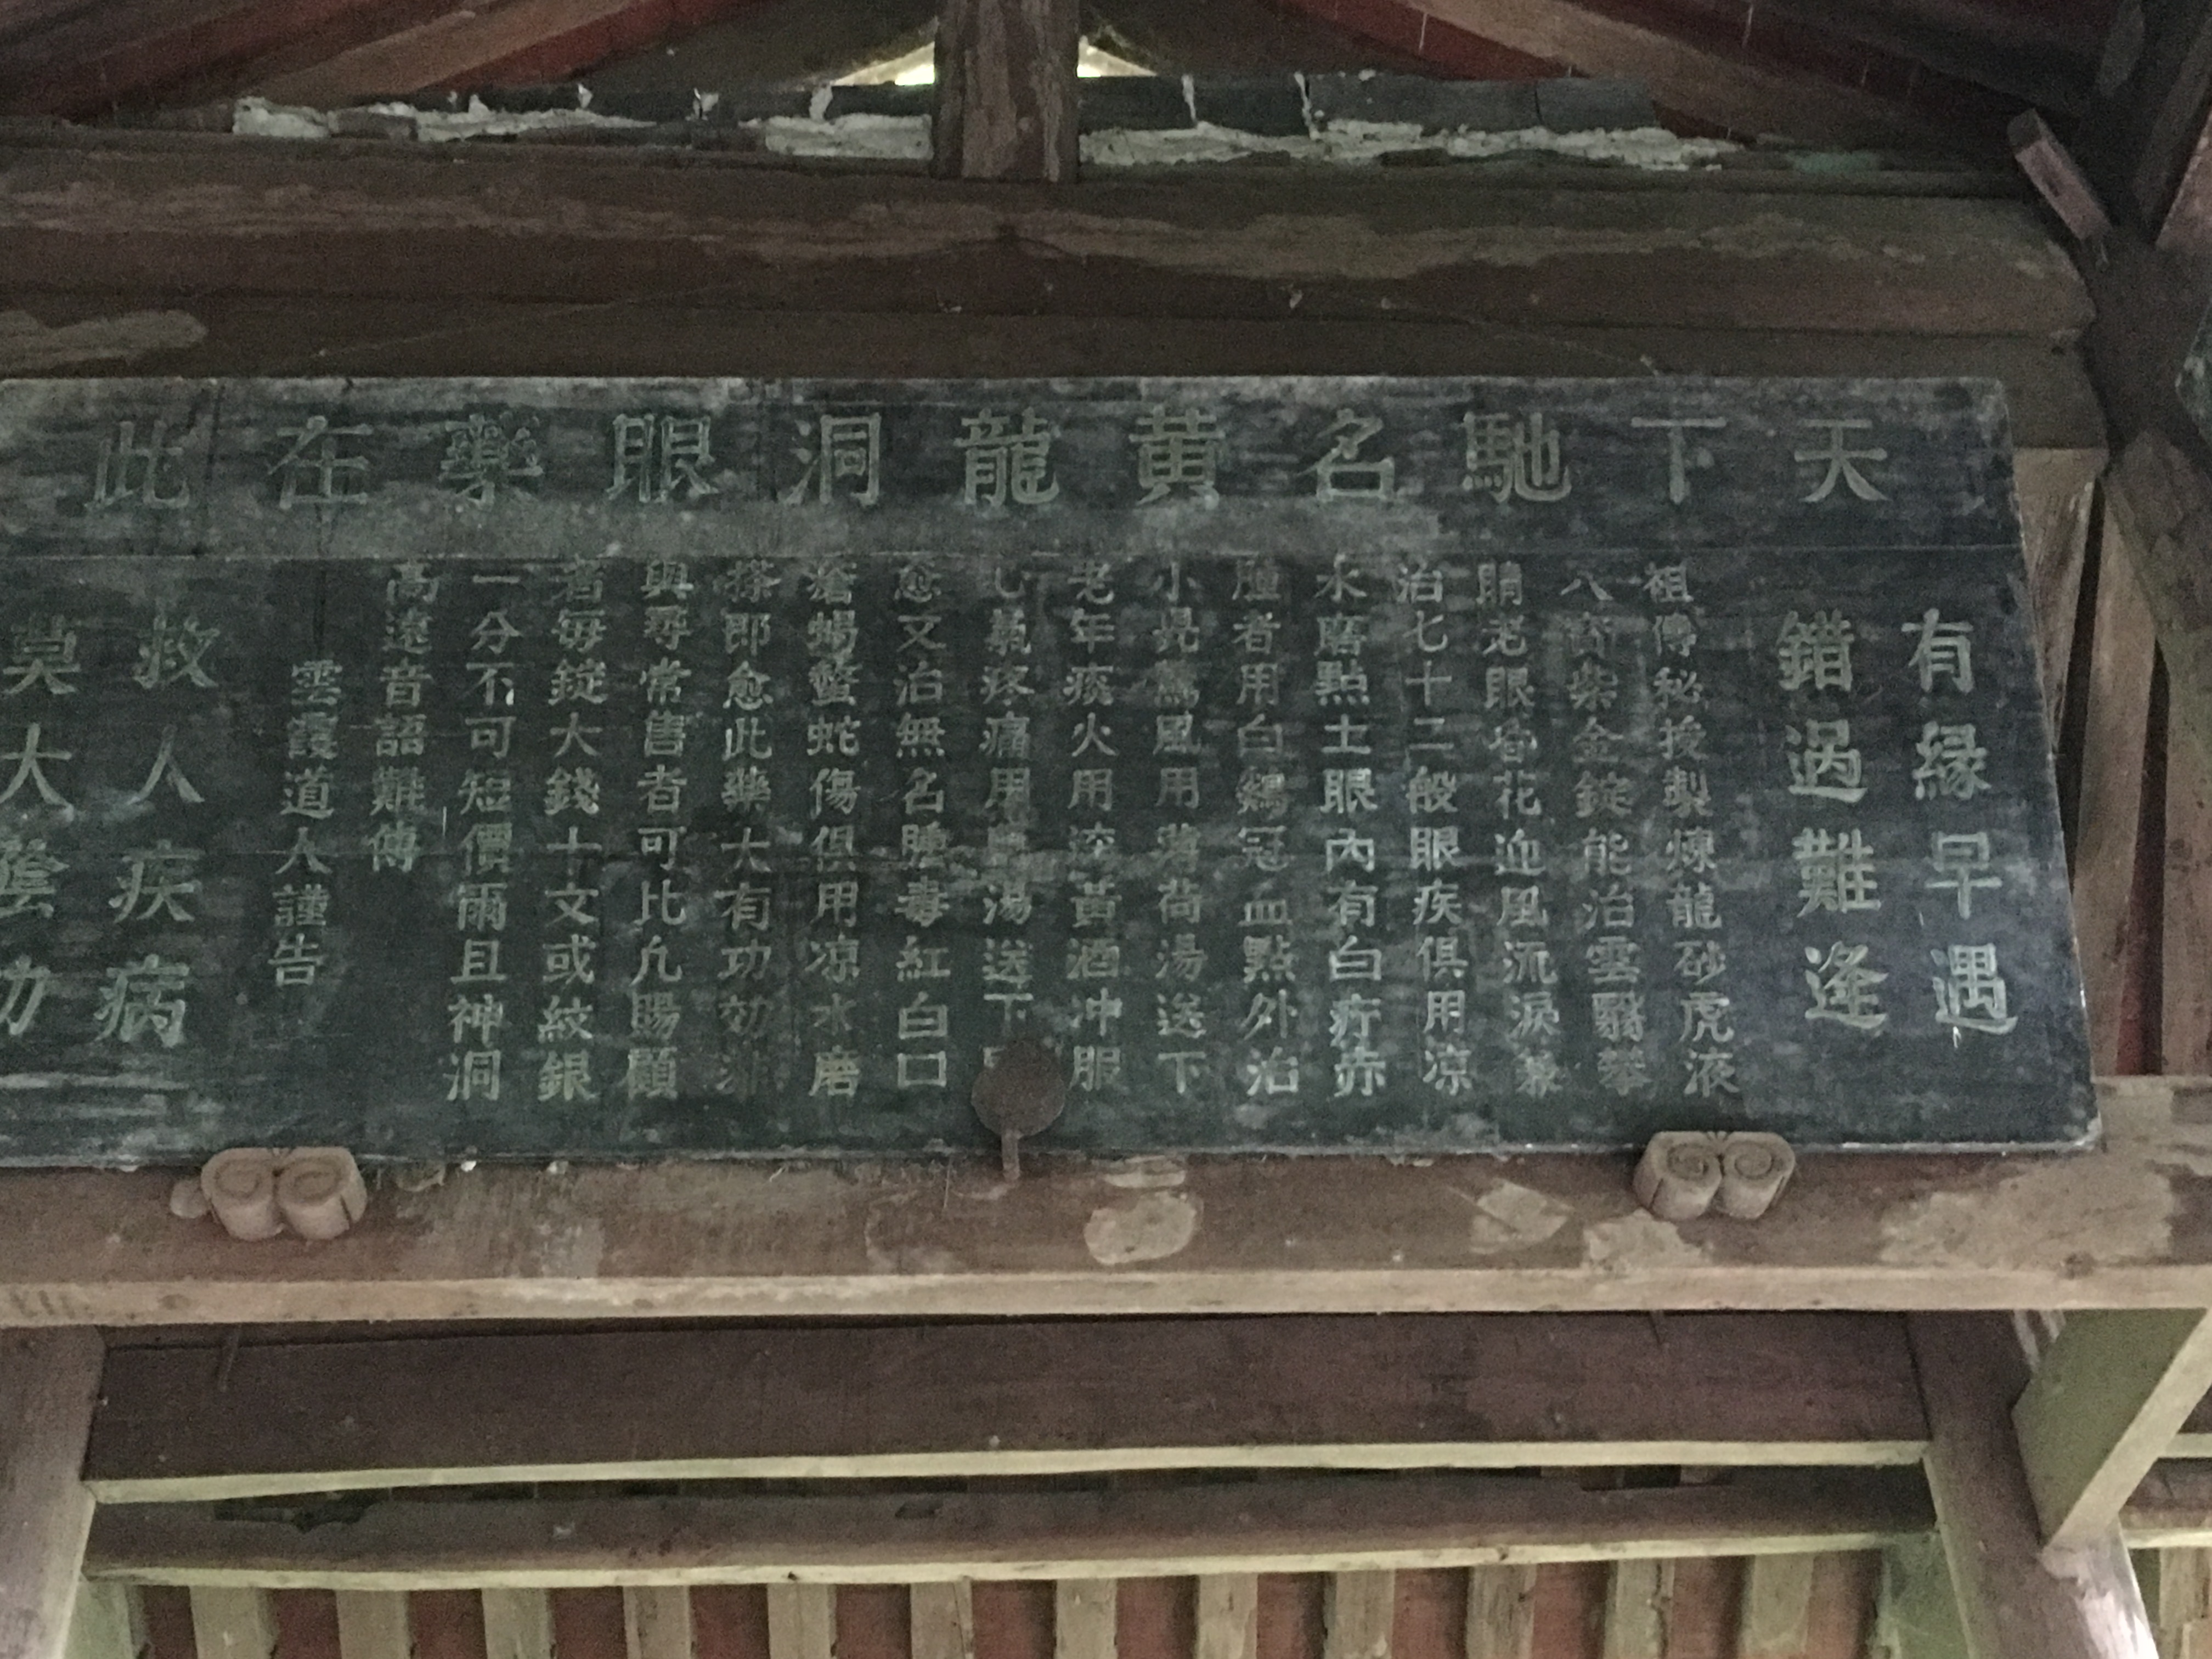 天下馳名黃龍洞眼藥在此
有緣早遇
錯過難逢
祖傳秘授製煉龍砂虎液
八寶紫金錠能治雲翳攀
睛老眼昏花迎風流淚兼
治七十二般眼疾俱用凉
水磨點土眼內有白疔赤
腫者用白鷄冠血點外治
小兒驚風用薄荷湯送下
老年痰火用 黃酒冲服
心氣疼痛用 湯送下
愈又治無名腫毒紅白口
瘡蝎蜇蛇傷俱用凉水磨
搽即愈此藥大有功効非
與尋常售者可比凢賜顧
者每錠大錢十文或紋銀
一分不可短價爾且神洞
高遠音語難傳
雲霞道人謹告
救人疾病
莫大 功